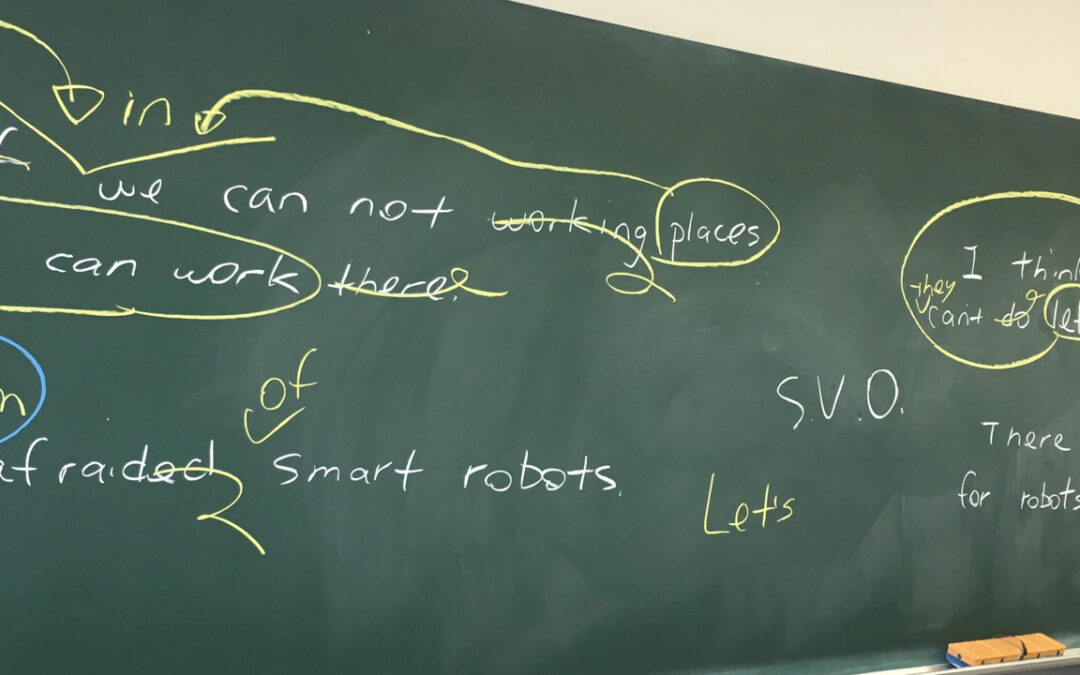 in
we can not working places
can work there.
of
afraided smart robots.
S.V.O.
Let's
I think
they
can't do let
There
for robots